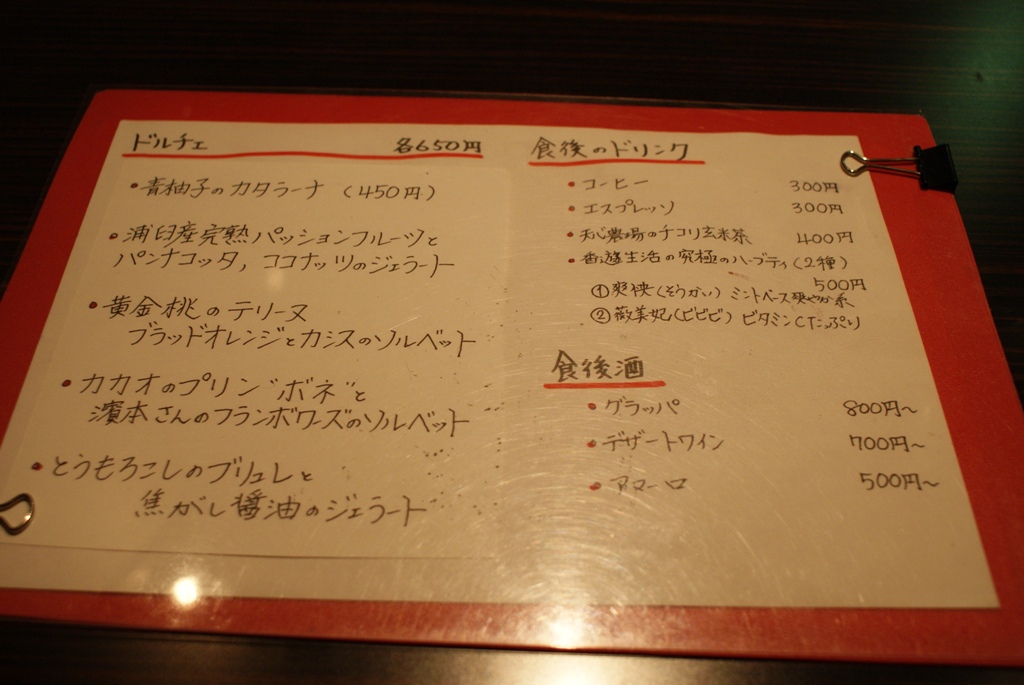 ドルチェ 各650円
・青柚子のカタラーナ (450円)
・浦臼産完熟パッションフルーツと
パンナコッタ, ココナッツのジェラート
・黄金桃のテリーヌ
ブラッドオレンジとカシスのソルベット
・カカオのプリン"ボネ"と
濱本さんのフランボワーズのソルベット
・とうもろこしのブリュレと
焦がし醤油のジェラート
食後のドリンク
・コーヒー 300円
・エスプレッソ 300円
・天心農場のチコリ玄米茶 400円
・香遊生活の究極のハーブティ(2種)
500円
①爽快(そうかい) ミントベース爽やか系
②薇美妃(ビビビ) ビタミンCたっぷり
食後酒
・グラッパ 800円～
・デザートワイン 700円～
・アマーロ 500円～